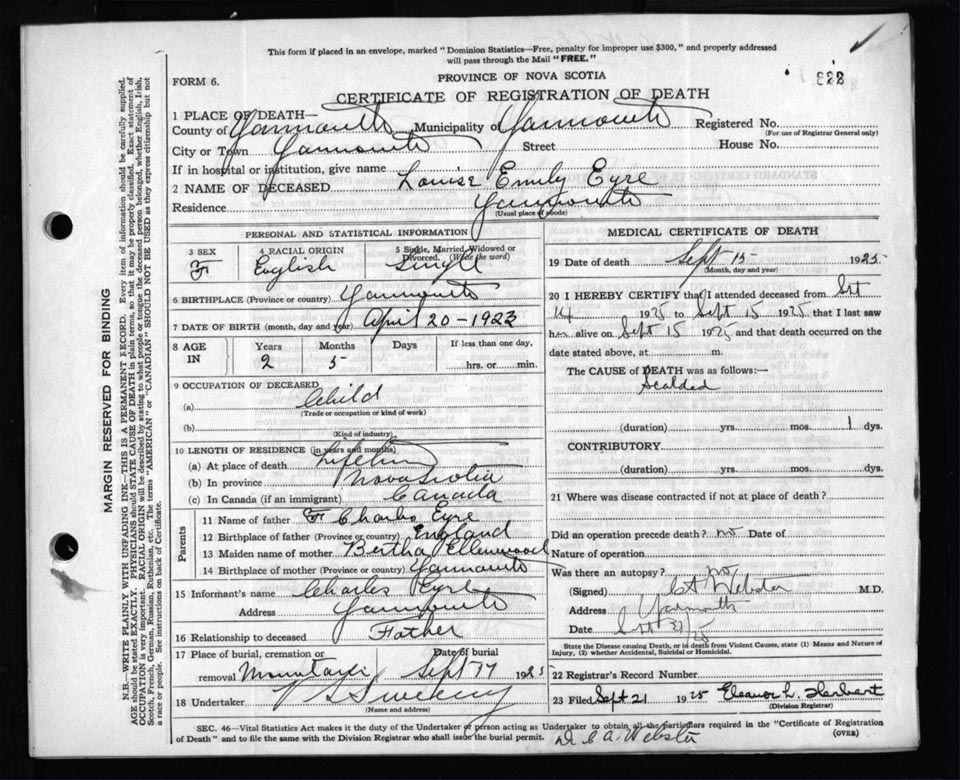 This form if placed in an envelope, marked "Dominion Statistics—Free, penalty for improper use $300," and properly addressed
will pass through the Mail "FREE."
FORM 6.
PROVINCE OF NOVA SCOTIA
CERTIFICATE OF REGISTRATION OF DEATH
1 PLACE OF DEATH—
County of Yarmouth Municipality of Yarmouth Registered No.
(For use of Registrar General only)
City or Town Yarmouth Street House No.
If in hospital or institution, give name
2 NAME OF DECEASED Louise Emily Eyre
Residence Yarmouth
(Usual place of abode)
PERSONAL AND STATISTICAL INFORMATION
3 SEX 4 RACIAL ORIGIN 5 Single, Married, Widowed or Divorced. (Write the word)
F English Single
6 BIRTHPLACE (Province or country) Yarmouth
7 DATE OF BIRTH (month, day and year) April 20-1923
8 AGE IN Years Months Days If less than one day,
2 5 hrs. or min.
9 OCCUPATION OF DECEASED
(a) Child
(Trade or occupation or kind of work)
(b)
(Kind of industry)
10 LENGTH OF RESIDENCE (in years and months)
(a) At place of death Lifetime
(b) In province Nova Scotia
(c) In Canada (if an immigrant) Canada
Parents
11 Name of father Charles Eyre
12 Birthplace of father (Province or country) England
13 Maiden name of mother Bertha Ellenwood
14 Birthplace of mother (Province or country) Yarmouth
15 Informant's name Charles Eyre
Address Yarmouth
16 Relationship to deceased Father
17 Place of burial, cremation or removal Date of burial
Sept 17 1925
18 Undertaker V S Sweeny
(Name and address)
MEDICAL CERTIFICATE OF DEATH
19 Date of death Sept 15 1925
(Month, day and year)
20 I HEREBY CERTIFY that I attended deceased from Sept
14 1925 to Sept 15 1925 that I last saw
her alive on Sept 15 1925 and that death occurred on the
date stated above, at m.
The CAUSE of DEATH was as follows:—
Scalded
(duration) yrs. mos. 1 dys.
CONTRIBUTORY.
(duration) yrs. mos. dys.
21 Where was disease contracted if not at place of death?
Did an operation precede death? no Date of
Nature of operation
Was there an autopsy? no
(Signed) C A Webster M.D.
Address Yarmouth
Date Sept
State the Disease causing Death, or in death from Violent Causes, state (1) Means and Nature of
Injury, (2) whether Accidental, Suicidal or Homicidal.
22 Registrar's Record Number
23 Filed Sept 21 1925 Eleanor L. Herbert
(Division Registrar)
SEC. 46—Vital Statistics Act makes it the duty of the Undertaker or person acting as Undertaker to obtain all the particulars required in the "Certificate of Registration
of Death" and to file the same with the Division Registrar who shall issue the burial permit.
(OVER)
Dr C A Webster
MARGIN RESERVED FOR BINDING
N.B.—WRITE PLAINLY WITH UNFADING INK—THIS IS A PERMANENT RECORD. Every item of information should be carefully supplied.
AGE should be stated EXACTLY. PHYSICIANS should STATE CAUSE OF DEATH in plain terms, so that it may be properly classified. Exact statement of
OCCUPATION is very important. RACIAL ORIGIN will be described by stating to what people or tongue the deceased person belonged, whether English, Irish,
Scotch, French, German, Russian, Ruthenian, etc. The terms "AMERICAN" or "CANADIAN" SHOULD NOT BE USED as they express citizenship but not
a race or people. See instructions on back of Certificate.